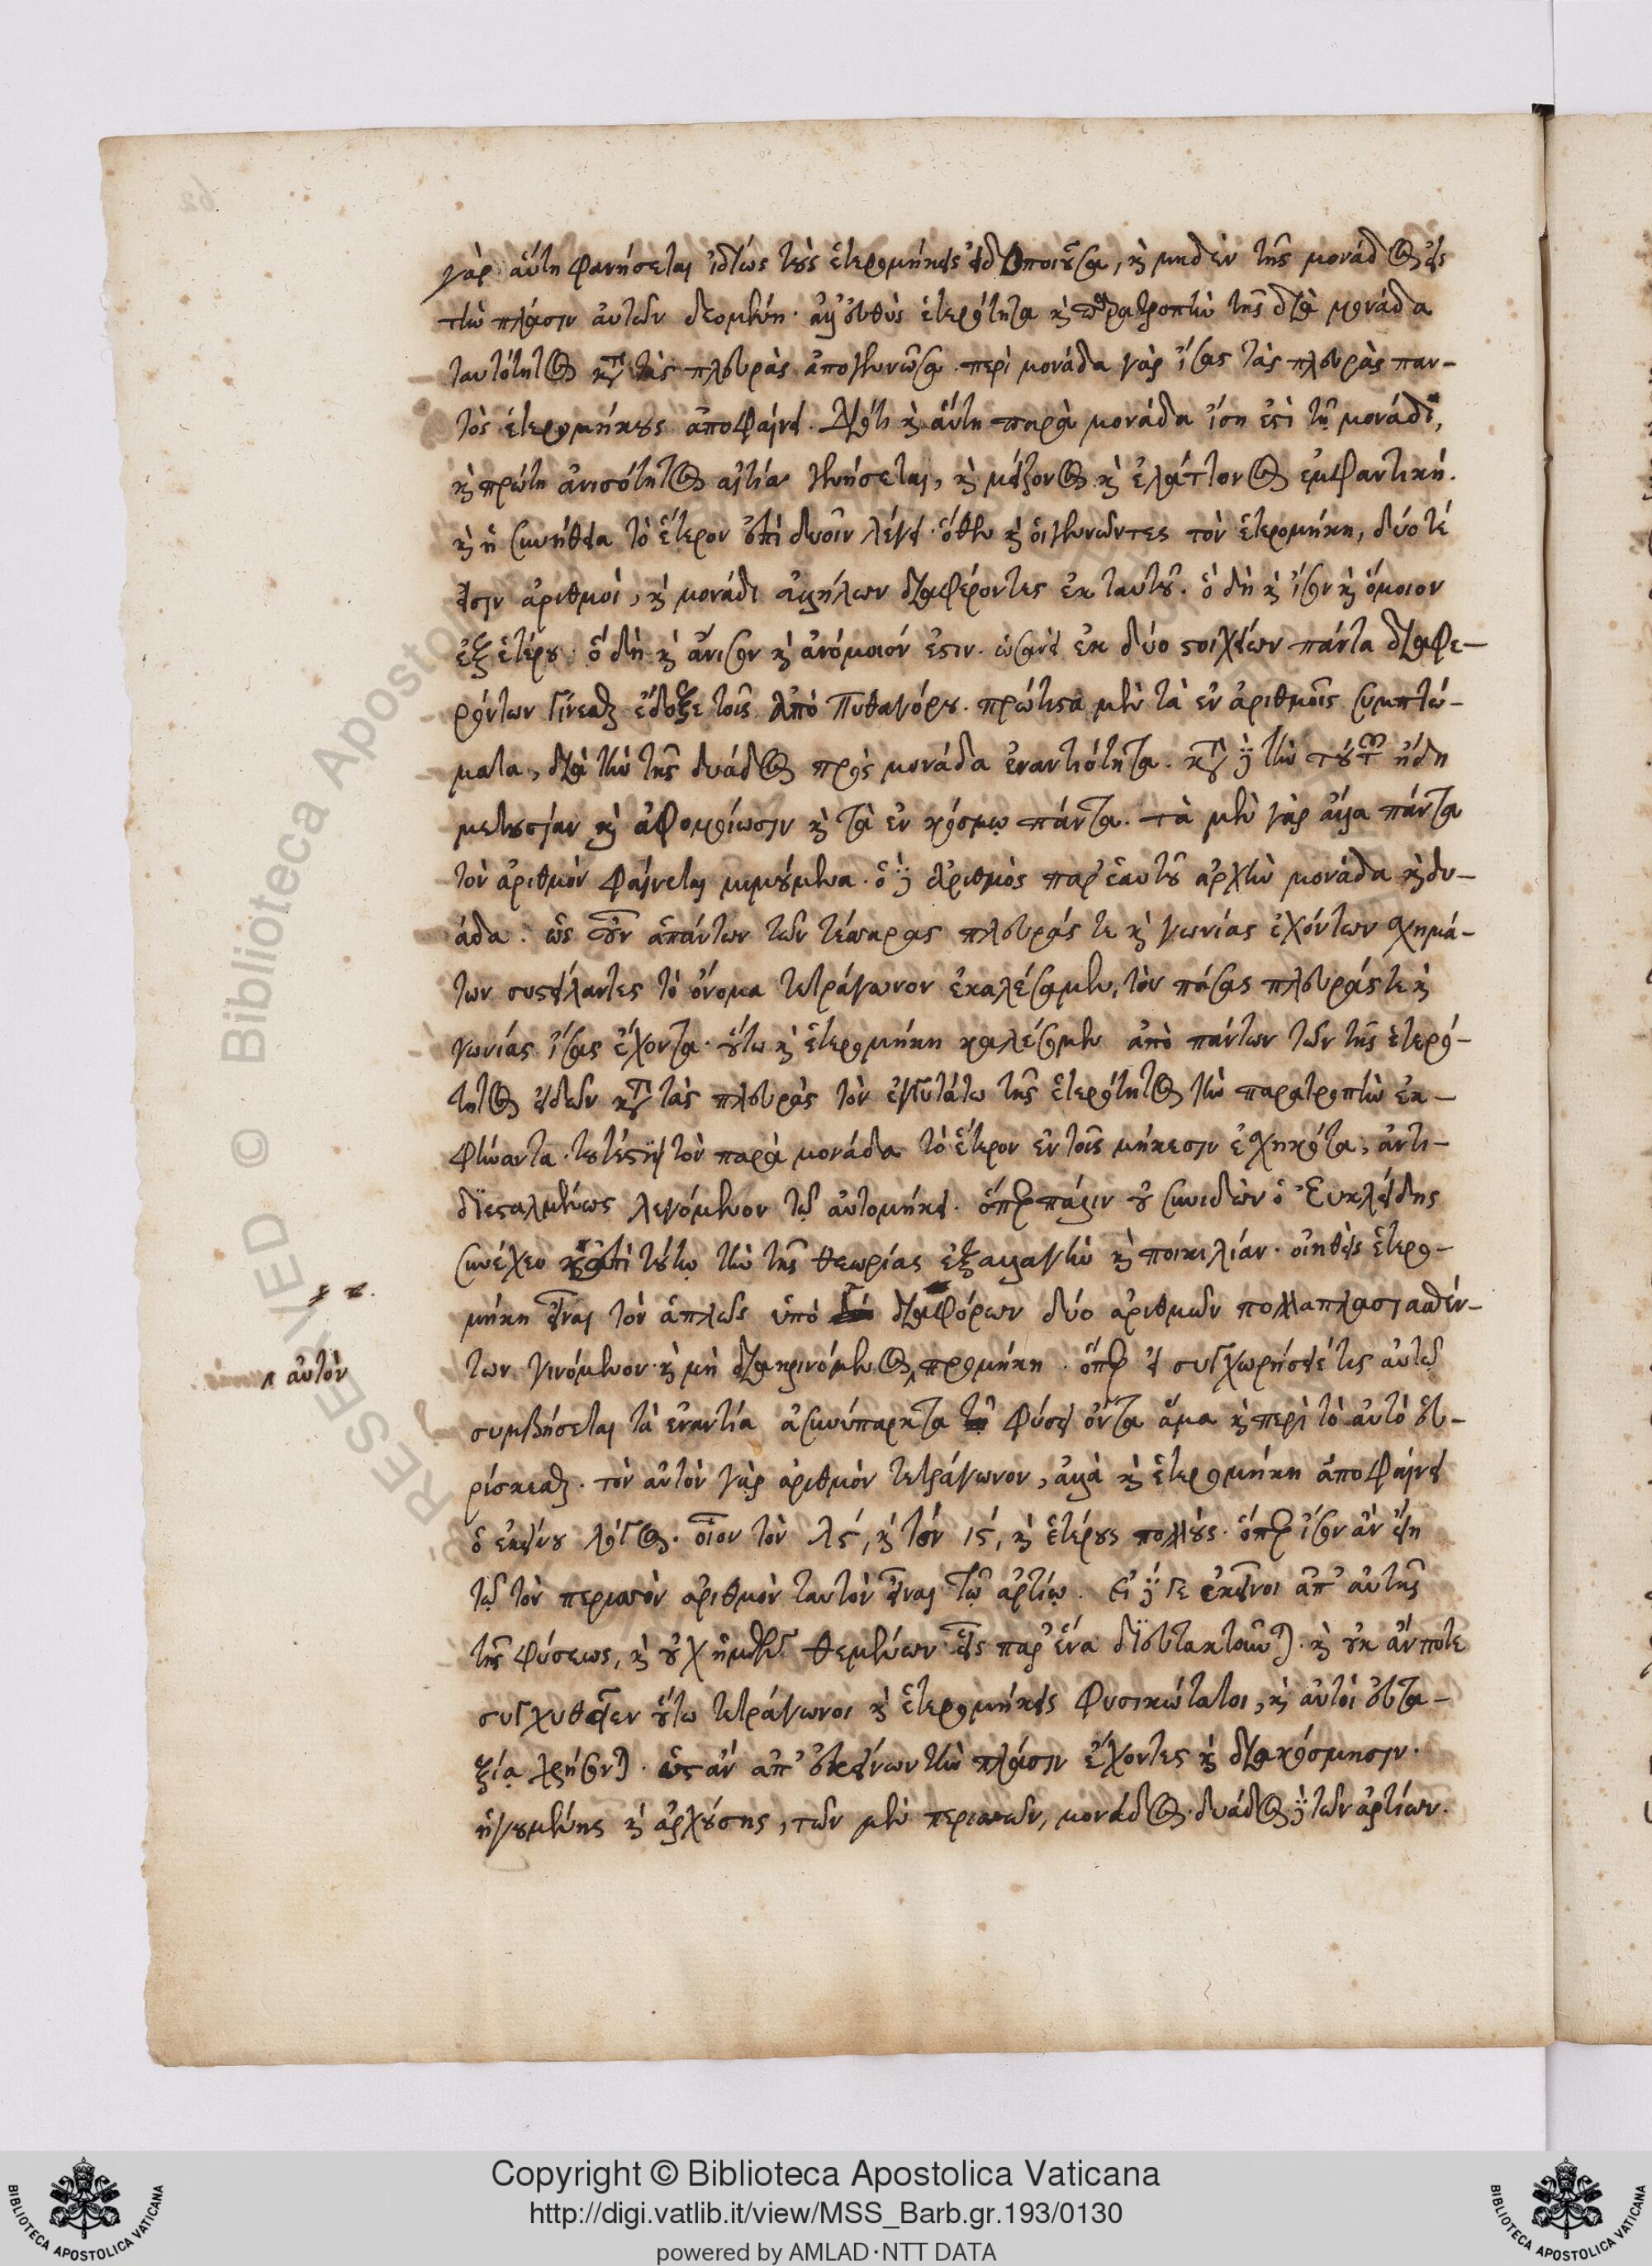 γὰρ αὕτη φανήσεται ἰδίως τοὺς ἑτερομήκεις εἰδοποιοῦσα, καὶ μηδὲν τῆς μονάδος εἰς
τὴν πλάσιν αὐτῶν δεομένη. ἀλλ' εὐθὺς ἑτερότητα καὶ παρατροπὴν τῆς διὰ μονάδα
ταυτότητος κατὰ τὰς πλευρὰς ἀπογεννῶσα. περὶ μονάδα γὰρ ἴσας τὰς πλευρὰς παν-
τὸς ἑτερομήκους ἀποφαίνει. διότι καὶ αὕτη παρὰ μονάδα ἴση ἐστὶ τῇ μονάδι,
καὶ πρώτη ἀνισότητος αἰτία γεννήσεται, καὶ μείζονος καὶ ἐλάττονος ἐμφαντική.
καὶ ἡ συνήθεια τὸ ἕτερον ἐπὶ δυοῖν λέγει. ὅθεν καὶ οἱ γεννῶντες τὸν ἑτερομήκη, δύο τέ
εἰσιν ἀριθμοί, καὶ μονάδι ἀλλήλων διαφέροντες ἐκ ταυτοῦ. ὃ δὴ καὶ ἴσον καὶ ὅμοιον
ἐξ ἑτέρου. ὃ δὴ καὶ ἄνισον καὶ ἀνόμοιόν ἐστιν. ὡσανεὶ ἐκ δύο στοιχείων πάντα διαφε-
ρόντων γίνεσθαι ἔδοξε τοῖς ἀπὸ Πυθαγόρου. πρώτιστα μὲν τὰ ἐν ἀριθμοῖς συμπτώ-
ματα, διὰ τὴν τῆς δυάδος πρὸς μονάδα ἐναντιότητα. κατὰ δὲ τὴν τούτων ἤδη
μετουσίαν καὶ ἀφομοίωσιν καὶ τὰ ἐν κόσμῳ πάντα. τὰ μὲν γὰρ ἄλλα πάντα
τὸν ἀριθμὸν φαίνεται μιμούμενα. ὁ δὲ ἀριθμὸς παρ' ἑαυτοῦ ἀρχὴν μονάδα καὶ δυ-
άδα. ὡς οὖν ἁπάντων τῶν τέσσαρας πλευράς τε καὶ γωνίας ἐχόντων σχημά-
των συστείλαντες τὸ ὄνομα τετράγωνον ἐκαλέσαμεν, τὸν πάσας πλευράς τε καὶ
γωνίας ἴσας ἔχοντα. οὕτω καὶ ἑτερομήκη καλέσομεν ἀπὸ πάντων τῶν τῆς ἑτερό-
τητος εἰδῶν κατὰ τὰς πλευρὰς τὸν ἐγγυτάτω τῆς ἑτερότητος τὴν παρατροπὴν ἐκ-
φήναντα. τουτέστι τὸν παρὰ μονάδα τὸ ἕτερον ἐν τοῖς μήκεσιν ἐσχηκότα, ἀντι-
διεσταλμένως λεγόμενον τῷ αὐτομήκει. ὅπερ πάλιν οὐ συνιδὼν ὁ Εὐκλείδης
συνέχεε κἀπὶ τούτῳ τὴν τῆς θεωρίας ἐξαλλαγὴν καὶ ποικιλίαν. οἰηθεὶς ἑτερο-
μήκη εἶναι τὸν ἁπλῶς ὑπὸ διαφόρων δύο ἀριθμῶν πολλαπλασιασθέν-
αὐτὸν
των γινόμενον. καὶ μὴ διακρινόμενος, προμήκη. ὅπερ εἰ συγχωρήσειέ τις αὐτῷ
συμβήσεται τὰ ἐναντία ἀσυνύπαρκτα τῇ φύσει ὄντα ἅμα καὶ περὶ τὸ αὐτὸ εὑ-
ρίσκεσθαι. τὸν αὐτὸν γὰρ ἀριθμὸν τετράγωνον, ἀλλὰ καὶ ἑτερομήκη ἀποφαίνει
ὁ ἐκείνου λόγος. οἷον τὸν λϛ, καὶ τὸν ιϛ, καὶ ἑτέρους πολλούς. ὅπερ ἴσον ἂν εἴη
τῷ τὸν περισσὸν ἀριθμὸν ταυτὸν εἶναι τῷ ἀρτίῳ. εἰ δέ γε ἐκεῖνοι ἀπ' αὐτῆς
τῆς φύσεως, καὶ οὐχ ἡμῶν θεμένων εἷς παρ' ἕνα διευτακτοῦνται. καὶ οὐκ ἄν ποτε
συγχυθεῖεν οὕτω τετράγωνοι καὶ ἑτερομήκεις φυσικώτατοι, καὶ αὐτοὶ εὐτα-
ξίᾳ χρήσονται. ὡς ἂν ἀπ' ἐκείνων τὴν πλάσιν ἔχοντες καὶ διακόσμησιν.
ἡγουμένης καὶ ἀρχούσης, τῶν μὲν περισσῶν, μονάδος. δυάδος δὲ τῶν ἀρτίων.
Copyright © Biblioteca Apostolica Vaticana
http://digi.vatlib.it/view/MSS_Barb.gr.193/0130
powered by AMLAD·NTT DATA